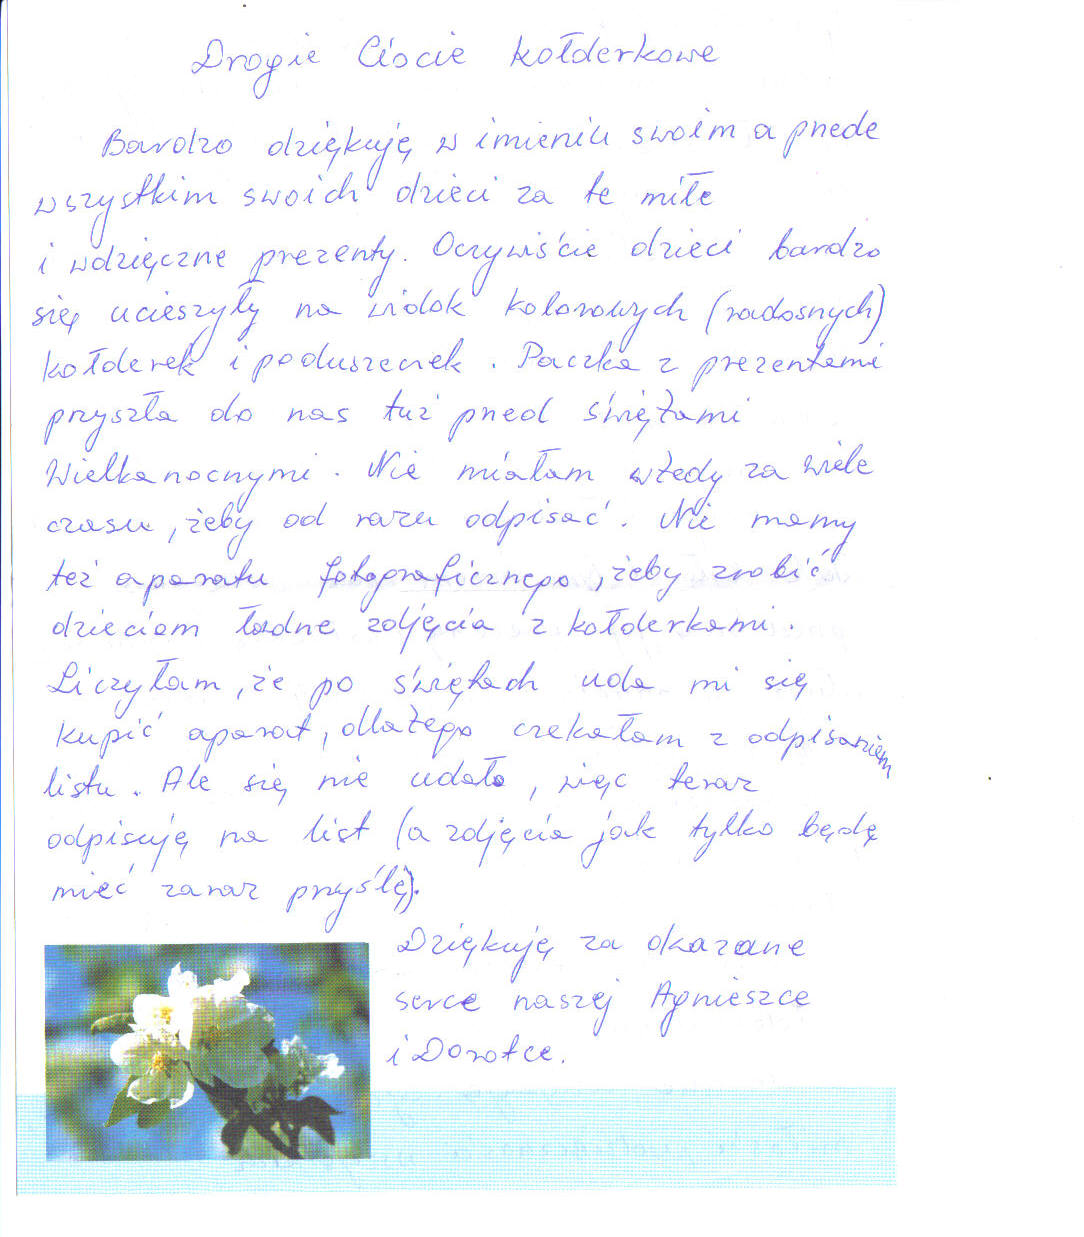 Drogie Ciocie kołderkowe
Bardzo dziękuję w imieniu swoim a przede
wszystkim swoich dzieci za te miłe
i wdzięczne prezenty. Oczywiście dzieci bardzo
się ucieszyły na widok kolorowych (radosnych)
kołderek i poduszeczek. Paczka z prezentami
przyszła do nas tuż przed świętami
Wielkanocnymi. Nie miałam wtedy za wiele
czasu, żeby od razu odpisać. Nie mamy
też aparatu fotograficznego, żeby zrobić
dzieciom ładne zdjęcia z kołderkami.
Liczyłam, że po świętach uda mi się
kupić aparat, dlatego czekałam z odpisaniem
listu. Ale się nie udało, więc teraz
odpisuję na list (a zdjęcia jak tylko będę
mieć zaraz przyślę).
Dziękuję za okazane
serce naszej Agnieszce
i Dorotce.